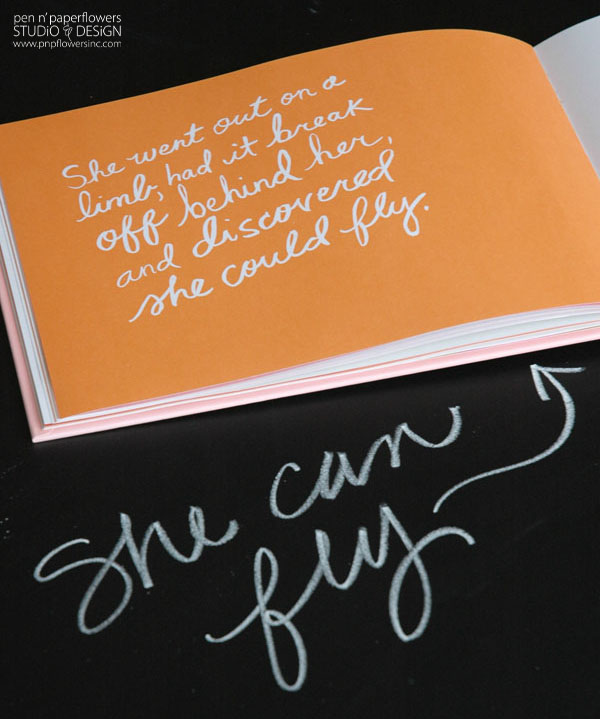 pen n' paperflowers
STUDiO & DESIGN
www.pnpflowersinc.com
She went out on a
limb, had it break
off behind her,
and discovered
she could fly.
she can
fly